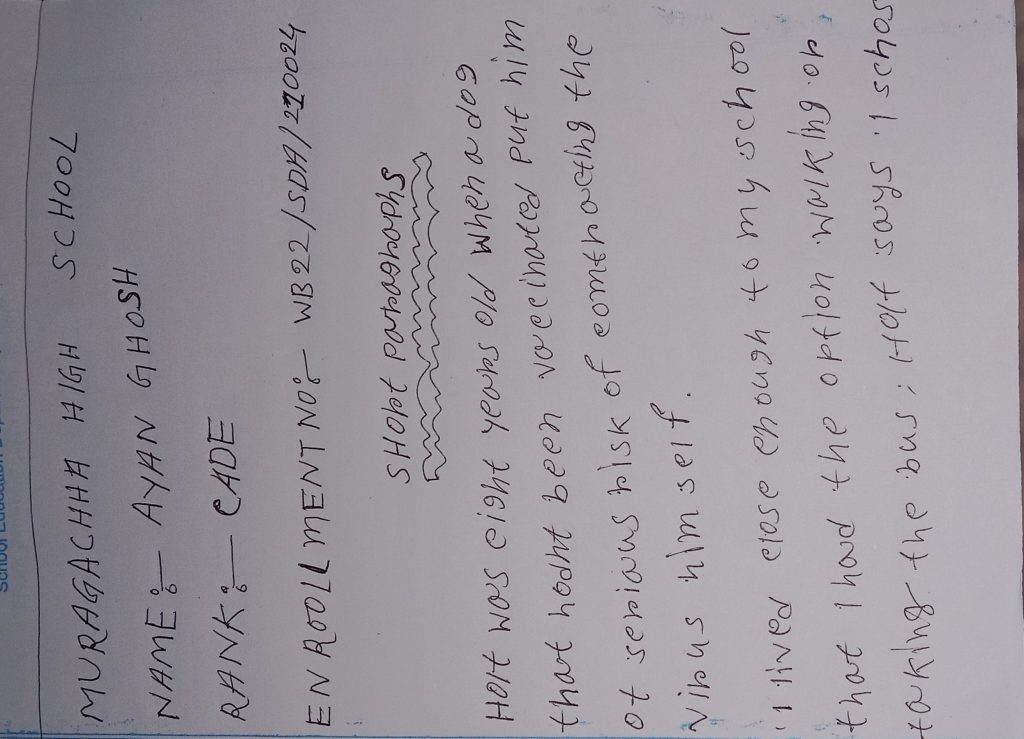 MURAGACHHA HIGH SCHOOL
NAME:- AYAN GHOSH
RANK:- CADE
ENROOLLMENT NO:- WB22/SDA/220024
SHORT paragraphs
Hart was eight years old when a dog
that hadnt been vaccinated put him
at serious risk of comtracting the
virus him self.
'I lived close enough to my school
that I had the option walking or
taking the bus; Hart says 'I schos